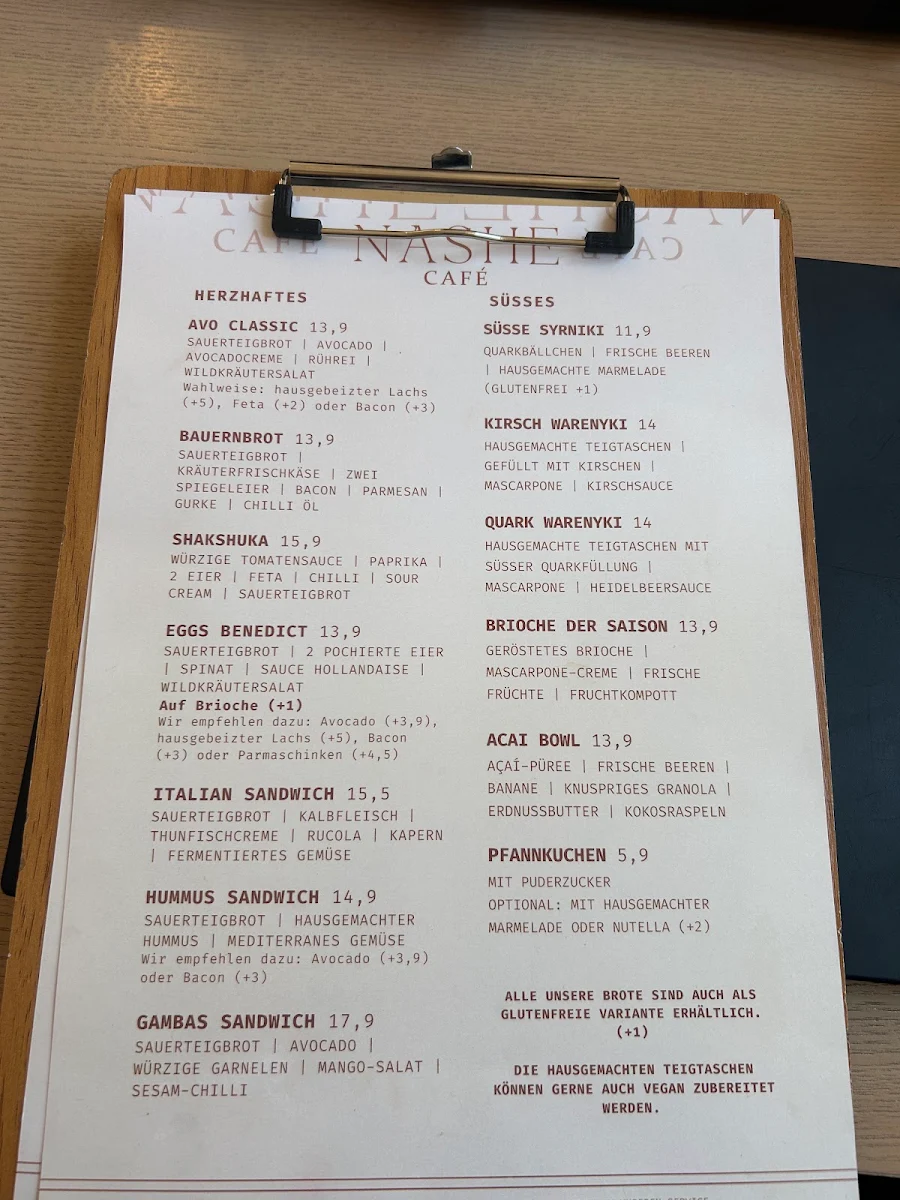 CAFÉ NASHE
CAFÉ
HERZHAFTES
AVO CLASSIC 13,9
SAUERTEIGBROT | AVOCADO |
AVOCADOCREME | RÜHREI |
WILDKRÄUTERSALAT
Wahlweise: hausgebeizter Lachs
(+5), Feta (+2) oder Bacon (+3)
BAUERNBROT 13,9
SAUERTEIGBROT |
KRÄUTERFRISCHKÄSE | ZWEI
SPIEGELEIER | BACON | PARMESAN |
GURKE | CHILLI ÖL
SHAKSHUKA 15,9
WÜRZIGE TOMATENSAUCE | PAPRIKA |
2 EIER | FETA | CHILLI | SOUR
CREAM | SAUERTEIGBROT
EGGS BENEDICT 13,9
SAUERTEIGBROT | 2 POCHIERTE EIER
| SPINAT | SAUCE HOLLANDAISE |
WILDKRÄUTERSALAT
Auf Brioche (+1)
Wir empfehlen dazu: Avocado (+3,9),
hausgebeizter Lachs (+5), Bacon
(+3) oder Parmaschinken (+4,5)
ITALIAN SANDWICH 15,5
SAUERTEIGBROT | KALBFLEISCH |
THUNFISCHCREME | RUCOLA | KAPERN
| FERMENTIERTES GEMÜSE
HUMMUS SANDWICH 14,9
SAUERTEIGBROT | HAUSGEMACHTER
HUMMUS | MEDITERRANES GEMÜSE
Wir empfehlen dazu: Avocado (+3,9)
oder Bacon (+3)
GAMBAS SANDWICH 17,9
SAUERTEIGBROT | AVOCADO |
WÜRZIGE GARNELEN | MANGO-SALAT |
SESAM-CHILLI
SÜSSES
SÜSSE SYRNIKI 11,9
QUARKBÄLLCHEN | FRISCHE BEEREN
| HAUSGEMACHTE MARMELADE
(GLUTENFREI +1)
KIRSCH WARENYKI 14
HAUSGEMACHTE TEIGTASCHEN |
GEFÜLLT MIT KIRSCHEN |
MASCARPONE | KIRSCHSAUCE
QUARK WARENYKI 14
HAUSGEMACHTE TEIGTASCHEN MIT
SÜSSER QUARKFÜLLUNG |
MASCARPONE | HEIDELBEERSAUCE
BRIOCHE DER SAISON 13,9
GERÖSTETES BRIOCHE |
MASCARPONE-CREME | FRISCHE
FRÜCHTE | FRUCHTKOMPOTT
ACAI BOWL 13,9
AÇAÍ-PÜREE | FRISCHE BEEREN |
BANANE | KNUSPRIGES GRANOLA |
ERDNUSSBUTTER | KOKOSRASPELN
PFANNKUCHEN 5,9
MIT PUDERZUCKER
OPTIONAL: MIT HAUSGEMACHTER
MARMELADE ODER NUTELLA (+2)
ALLE UNSERE BROTE SIND AUCH ALS
GLUTENFREIE VARIANTE ERHÄLTLICH.
(+1)
DIE HAUSGEMACHTEN TEIGTASCHEN
KÖNNEN GERNE AUCH VEGAN ZUBEREITET
WERDEN.